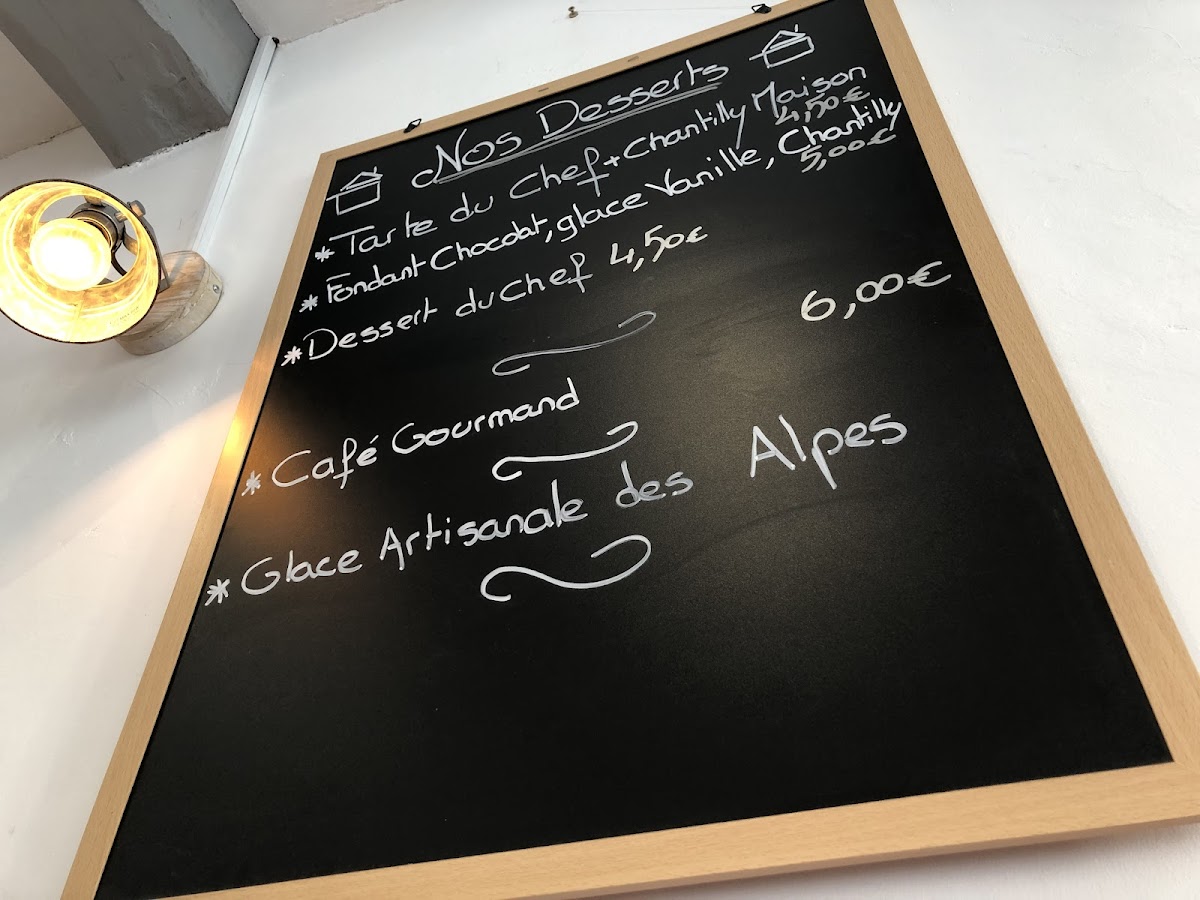 Nos Desserts
* Tarte du Chef + Chantilly Maison
4,50 €
* Fondant Chocolat, glace Vanille, Chantilly
5,00 €
* Dessert du Chef 4,50 €
* Café Gourmand 6,00 €
* Glace Artisanale des Alpes